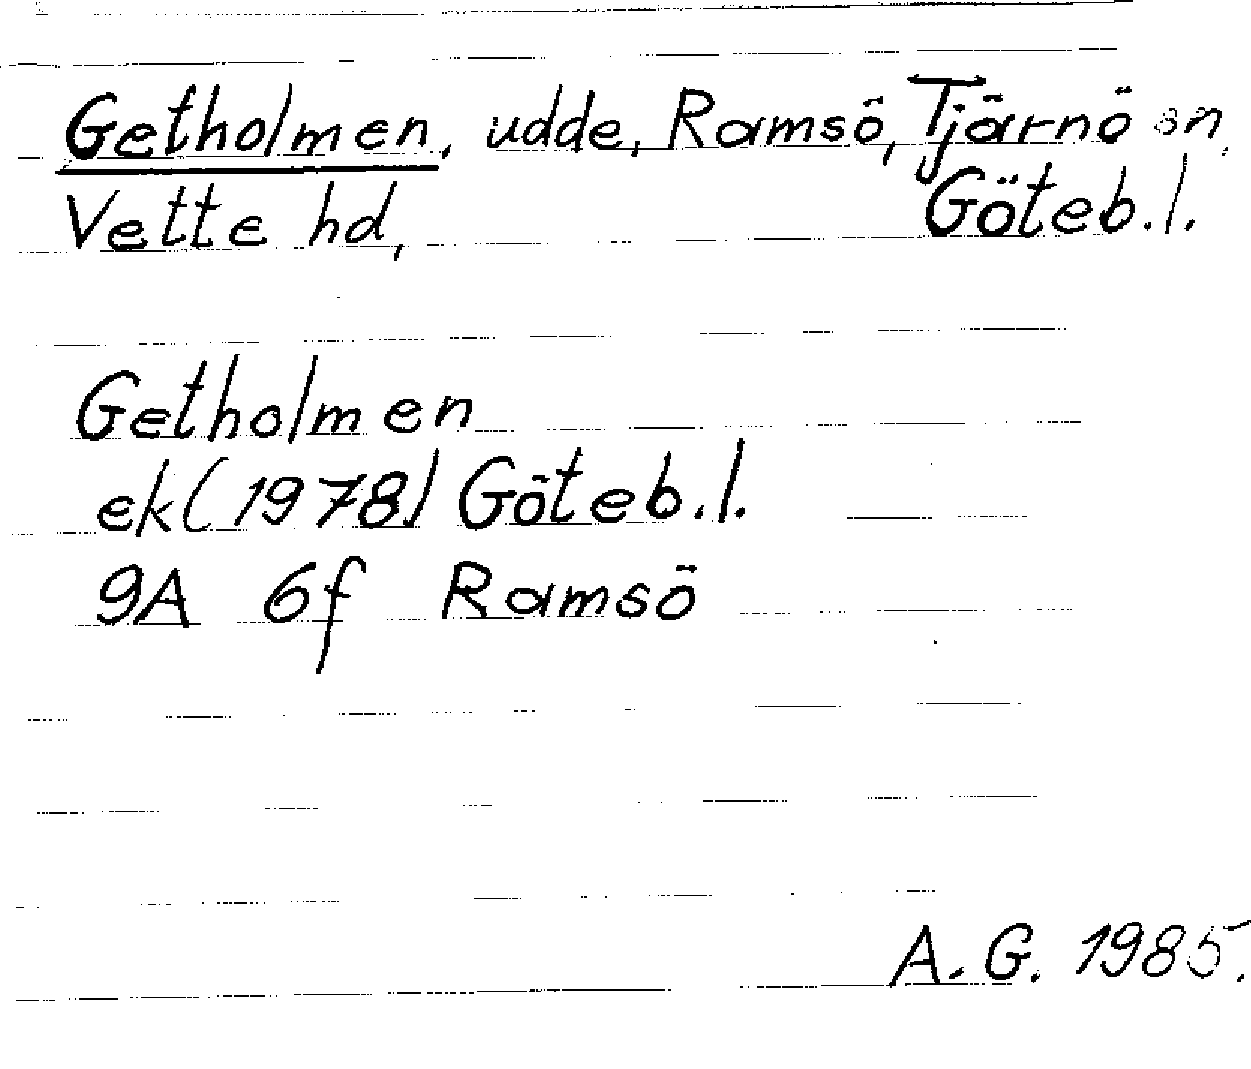 Getholmen, udde, Ramsö, Tjärnö sn,
Vette hd, Göteb.l.
Getholmen
ek(1978) Göteb.l.
9A 6f Ramsö
A.G. 1985.